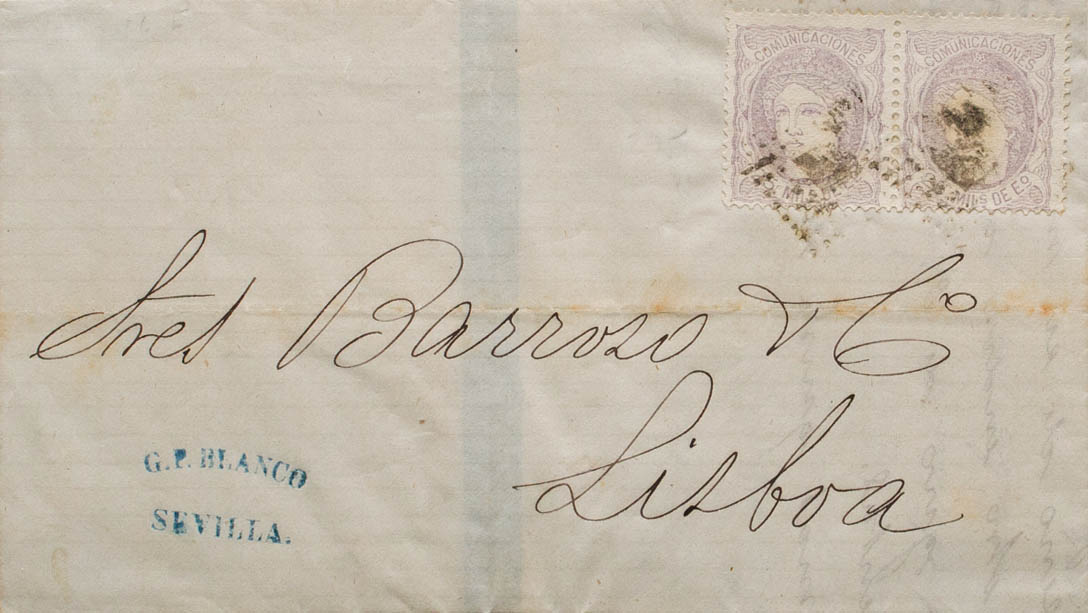 COMUNICACIONES COMUNICACIONES
MILS DE Eo
Sres Barroso & Co
Lisboa
G.P. BLANCO
SEVILLA.